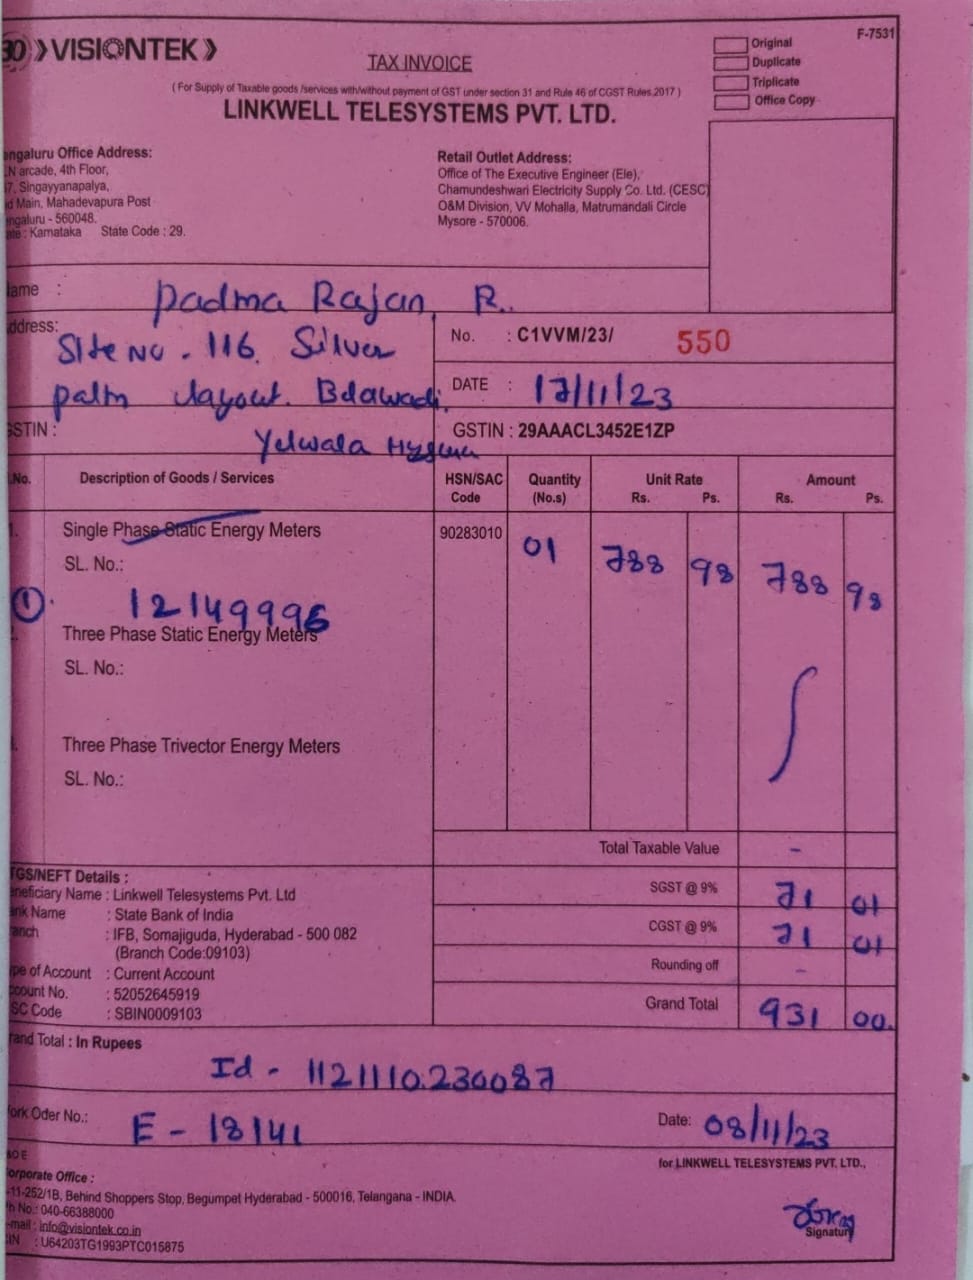 30 VISIONTEK
F-7531
TAX INVOICE
Original
Duplicate
Triplicate
Office Copy
( For Supply of Taxable goods /services with/without payment of GST under section 31 and Rule 46 of CGST Rules,2017 )
LINKWELL TELESYSTEMS PVT. LTD.
ngaluru Office Address:
N arcade, 4th Floor,
7, Singayyanapalya,
d Main, Mahadevapura Post
ngaluru - 560048.
ate : Karnataka State Code : 29.
Retail Outlet Address:
Office of The Executive Engineer (Ele),
Chamundeshwari Electricity Supply Co. Ltd. (CESC)
O&M Division, VV Mohalla, Matrumandali Circle
Mysore - 570006.
ame : Padma Rajan R.
ddress: Site No - 116, Silver
palm layout. Belawadi,
Yelwala
No. : C1VVM/23/ 550
DATE : 17/11/23
GSTIN :
GSTIN : 29AAACL3452E1ZP
.No. Description of Goods / Services HSN/SAC Code Quantity (No.s) Unit Rate Rs. Ps. Amount Rs. Ps.
Single Phase Static Energy Meters 90283010 01 788 98 788 98
SL. No.:
① 12149996
Three Phase Static Energy Meters
SL. No.:
Three Phase Trivector Energy Meters
SL. No.:
Total Taxable Value -
SGST @ 9% 71 01
CGST @ 9% 71 01
Rounding off -
Grand Total 931 00.
TGS/NEFT Details :
neficiary Name : Linkwell Telesystems Pvt. Ltd
ank Name : State Bank of India
anch : IFB, Somajiguda, Hyderabad - 500 082
(Branch Code:09103)
pe of Account : Current Account
count No. : 52052645919
SC Code : SBIN0009103
rand Total : In Rupees
Id - 1121110230087
ork Oder No.: E - 18141
Date: 08/11/23
& O E
for LINKWELL TELESYSTEMS PVT. LTD.,
orporate Office :
-11-252/1B, Behind Shoppers Stop, Begumpet Hyderabad - 500016, Telangana - INDIA.
h No.: 040-66388000
-mail : info@visiontek.co.in
IN : U64203TG1993PTC015875
Signature